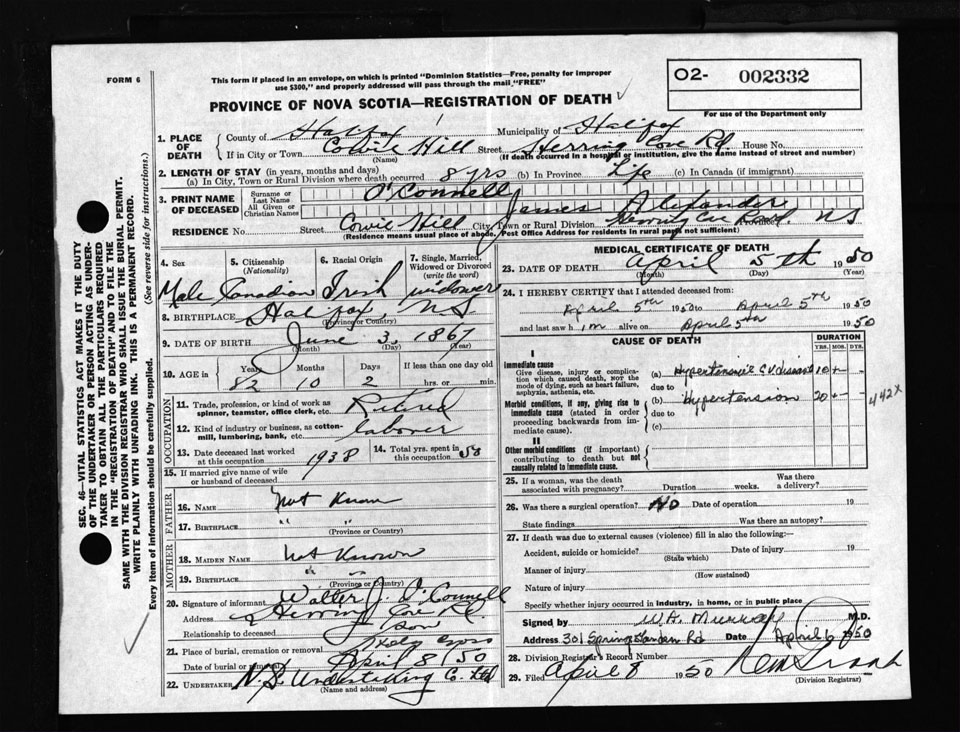 FORM 6
This form if placed in an envelope, on which is printed "Dominion Statistics—Free, penalty for improper
use $300," and properly addressed will pass through the mail "FREE"
PROVINCE OF NOVA SCOTIA—REGISTRATION OF DEATH
O2- 002332
For use of the Department only
SEC. 46—VITAL STATISTICS ACT MAKES IT THE DUTY
OF THE UNDERTAKER OR PERSON ACTING AS UNDER-
TAKER TO OBTAIN ALL THE PARTICULARS REQUIRED
IN THE "REGISTRATION OF DEATH" AND TO FILE THE
SAME WITH THE DIVISION REGISTRAR WHO SHALL ISSUE THE BURIAL PERMIT.
WRITE PLAINLY WITH UNFADING INK. THIS IS A PERMANENT RECORD.
Every item of information should be carefully supplied. (See reverse side for instructions.)
1. PLACE OF DEATH
County of Halifax Municipality of Halifax
If in City or Town Cowie Hill Street Herring Cove Rd. House No.
(Name) (If death occurred in a hospital or institution, give the name instead of street and number)
2. LENGTH OF STAY (in years, months and days)
(a) In City, Town or Rural Division where death occurred 8 yrs (b) In Province Life (c) In Canada (if immigrant)
3. PRINT NAME OF DECEASED
Surname or Last Name O'Connell
All Given or Christian Names James Alexander
RESIDENCE No. Street Cowie Hill City, Town or Rural Division Herring Cove Road, Province N.S
(Residence means usual place of abode. Post Office Address for residents in rural parts not sufficient)
4. Sex
5. Citizenship (Nationality)
6. Racial Origin
7. Single, Married, Widowed or Divorced (write the word)
Male Canadian Irish widower
8. BIRTHPLACE Halifax, N.S
(Province or Country)
9. DATE OF BIRTH June 3, 1867
(Month) (Day) (Year)
10. AGE in Years Months Days If less than one day old
82 10 2 hrs. or min.
OCCUPATION
11. Trade, profession, or kind of work as spinner, teamster, office clerk, etc. Retired
12. Kind of industry or business, as cotton-mill, lumbering, bank, etc. laborer
13. Date deceased last worked at this occupation 1938
14. Total yrs. spent in this occupation 50
15. If married give name of wife or husband of deceased
FATHER
16. NAME Not Known
17. BIRTHPLACE " "
(Province or Country)
MOTHER
18. MAIDEN NAME Not Known
19. BIRTHPLACE " "
(Province or Country)
20. Signature of informant Walter J. O'Connell
Address Herring Cove Rd.
Relationship to deceased Son
21. Place of burial, cremation or removal Holy Cross
Date of burial or removal April 8/50
22. UNDERTAKER N.S. Undertaking Co. Ltd
(Name and address)
MEDICAL CERTIFICATE OF DEATH
23. DATE OF DEATH April 5th 1950
(Month) (Day) (Year)
24. I HEREBY CERTIFY that I attended deceased from:
April 5th 1950 to April 5th 1950
and last saw him alive on April 5th 1950
CAUSE OF DEATH
DURATION
YRS. MOS. DYS.
I
Immediate cause
Give disease, injury or complication which caused death, NOT the mode of dying, such as heart failure, asphyxia, asthenia, etc.
(a) Hypertensive C.V. disease 10+ -
due to
Morbid conditions, if any, giving rise to immediate cause (stated in order proceeding backwards from immediate cause).
(b) Hypertension 20+ -
due to
(c)
442X
II
Other morbid conditions (if important) contributing to death but not causally related to immediate cause.
25. If a woman, was the death associated with pregnancy? Duration weeks. Was there a delivery?
26. Was there a surgical operation? No Date of operation 19
State findings Was there an autopsy?
27. If death was due to external causes (violence) fill in also the following:
Accident, suicide or homicide? Date of injury 19
(State which)
Manner of injury
(How sustained)
Nature of injury
Specify whether injury occurred in industry, in home, or in public place
Signed by W.A. Murray M.D.
Address 301 Spring Garden Rd Date April 6 1950
28. Division Registrar's Record Number
29. Filed April 8 1950
(Division Registrar)